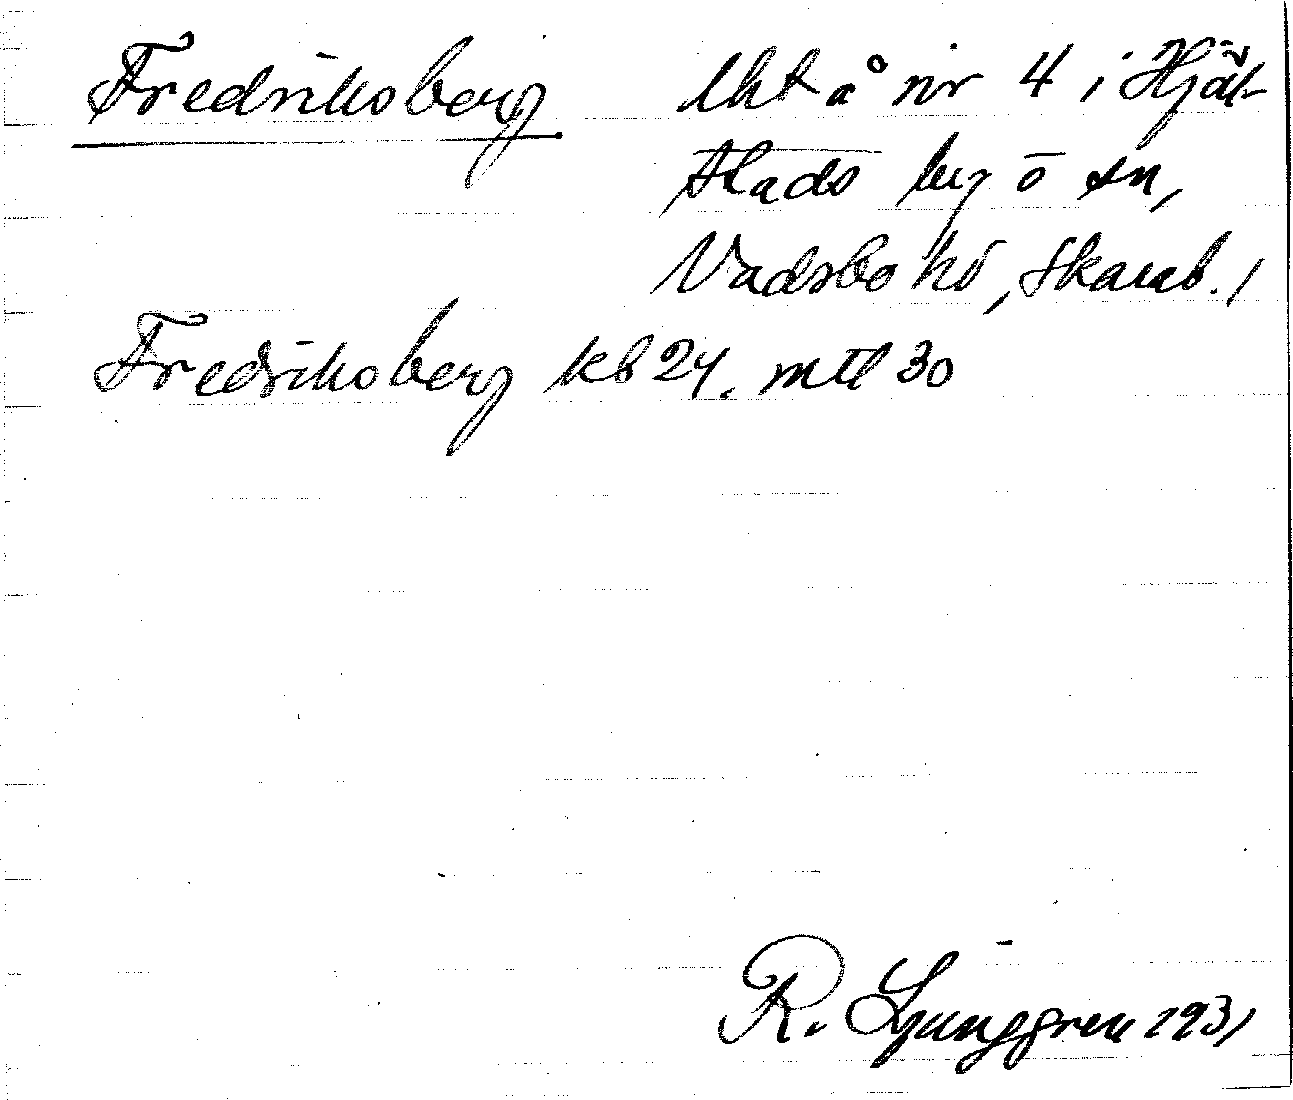 Fredriksberg lht å nr 4 i Hjäl-
stads by o sn,
Vadsbo hd, Skarab. l
Fredriksberg kb 24. mtl 30
R. Ljunggren 1931